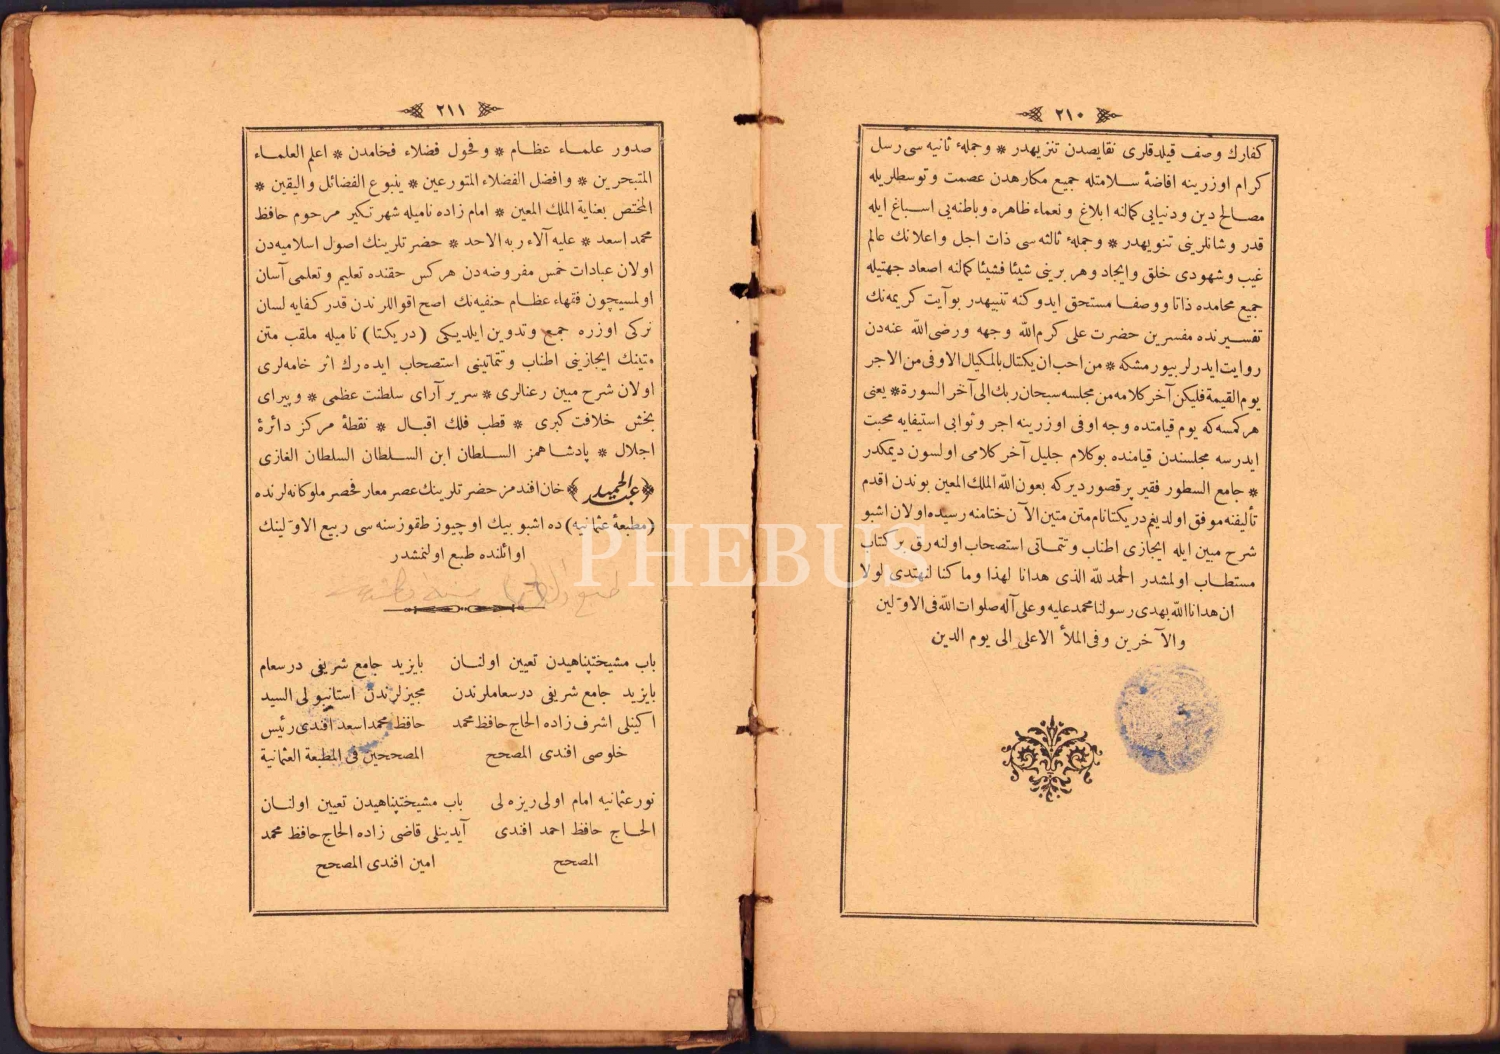 ٢١٠
كفارك وصف قيلدقلرى نقايصدن تنزيهدر * وجملهٔ ثانيه سى رسل
كرام اوزرينه افاضهٔ سلامتله جميع مكارهدن عصمت وتوسطلريله
مصالح دين ودنيايى كمالنه ابلاغ ونعماء ظاهره وباطنه يى اسباغ ايله
قدر وشانلرينى تنويهدر * وجملهٔ ثالثه سى ذات اجل واعلانك عالم
غيب وشهودى خلق وايجاد وهر برينى شيئا فشيئا كمالنه اصعاد جهتيله
جميع محامده ذاتا ووصفا مستحق ايدوكنه تنبيهدر بو آيت كريمه نك
تفسيرنده مفسرين حضرت على كرم الله وجهه ورضى الله عنه دن
روايت ايدرلر بيورمشكه * من احب ان يكتال بالمكيال الاوفى من الاجر
يوم القيمة فليكن آخر كلامه من مجلسه سبحان ربك الى آخر السورة * يعنى
هر كمسه كه يوم قيامتده وجه اوفى اوزرينه اجر وثوابى استيفايه محبت
ايدرسه مجلسندن قيامنده بو كلام جليل آخر كلامى اولسون ديمكدر
* جامع السطور فقير پر قصور ديركه بعون الله الملك المعين بوندن اقدم
تأليفنه موفق اولديغم دريكتا نام متن متين الآن ختامنه رسيده اولان اشبو
شرح مبين ايله ايجازى اطناب وتتماتى استصحاب اولنه رق بر كتاب
مستطاب اولمشدر الحمد لله الذى هدانا لهذا وما كنا لنهتدى لولا
ان هدانا الله بهدى رسولنا محمد عليه وعلى آله صلوات الله فى الاولين
والآخرين وفى الملأ الاعلى الى يوم الدين
٢١١
صدور علماء عظام * وفحول فضلاء فخامدن * اعلم العلماء
المتبحرين * وافضل الفضلاء المتورعين * ينبوع الفضائل واليقين *
المختص بعناية الملك المعين * امام زاده ناميله شهرتكير مرحوم حافظ
محمد اسعد * عليه آلاء ربه الاحد * حضرتلرينك اصول اسلاميه دن
اولان عبادات خمس مفروضه دن هركس حقنده تعليم وتعلمى آسان
اولمسيچون فقهاء عظام حنفيه نك اصح اقوالرندن قدر كفايه لسان
تركى اوزره جمع وتدوين ايلديكى (دريكتا) ناميله ملقب متن
متينك ايجازينى اطناب وتتماتينى استصحاب ايده رك اثر خامه لرى
اولان شرح مبين رعنالرى * سرير آراى سلطنت عظمى * وپيراى
بخش خلافت كبرى * قطب فلك اقبال * نقطهٔ مركز دائرهٔ
اجلال * پادشاهمز السلطان ابن السلطان السلطان الغازى
﴿عبد الحميد﴾ خان افندمز حضرتلرينك عصر معارفحصر ملوكانه لرنده
(مطبعهٔ عثمانيه) ده اشبو بيك اوچيوز طقوز سنه سى ربيع الاولينك
اوائلنده طبع اولنمشدر
باب مشيختپناهيدن تعيين اولنان
بايزيد جامع شريفى درسعاملرندن
اكينلى اشرف زاده الحاج حافظ محمد
خلوصى افندى المصحح
بايزيد جامع شريفى درسعام
مجيزلرندن استانبولى السيد
حافظ محمد اسعد افندى رئيس
المصححين فى المطبعة العثمانية
نور عثمانيه امام اولى ريزه لى
الحاج حافظ احمد افندى
المصحح
باب مشيختپناهيدن تعيين اولنان
آيدينلى قاضى زاده الحاج حافظ محمد
امين افندى المصحح
PHEBUS